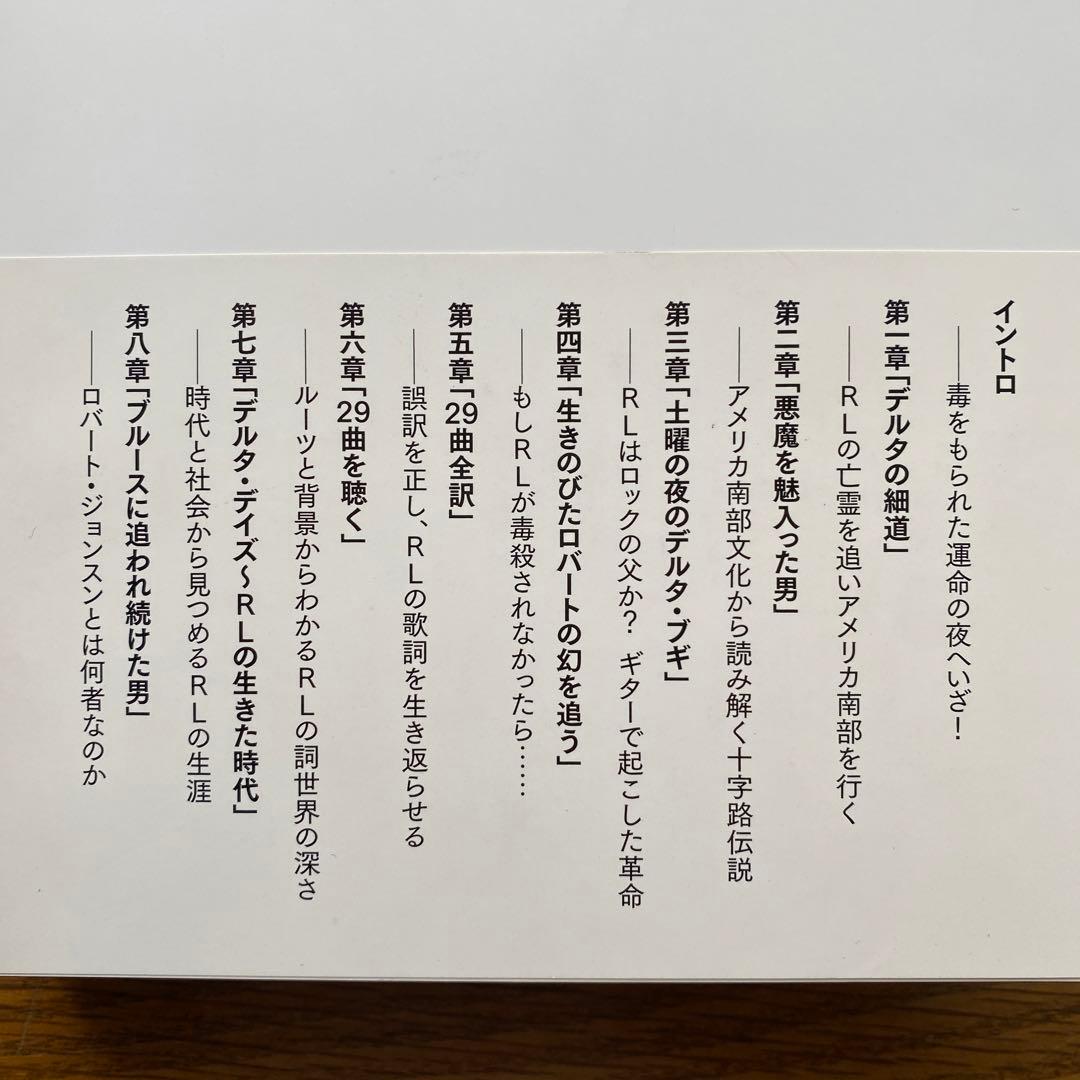 イントロ
――毒をもられた運命の夜へいざ！
第一章「デルタの細道」
――RLの亡霊を追いアメリカ南部を行く
第二章「悪魔を魅入った男」
――アメリカ南部文化から読み解く十字路伝説
第三章「土曜の夜のデルタ・ブギ」
――RLはロックの父か？ ギターで起こした革命
第四章「生きのびたロバートの幻を追う」
――もしRLが毒殺されなかったら……
第五章「29曲全訳」
――誤訳を正し、RLの歌詞を生き返らせる
第六章「29曲を聴く」
――ルーツと背景からわかるRLの詞世界の深さ
第七章「デルタ・デイズ〜RLの生きた時代」
――時代と社会から見つめるRLの生涯
第八章「ブルースに追われ続けた男」
――ロバート・ジョンスンとは何者なのか